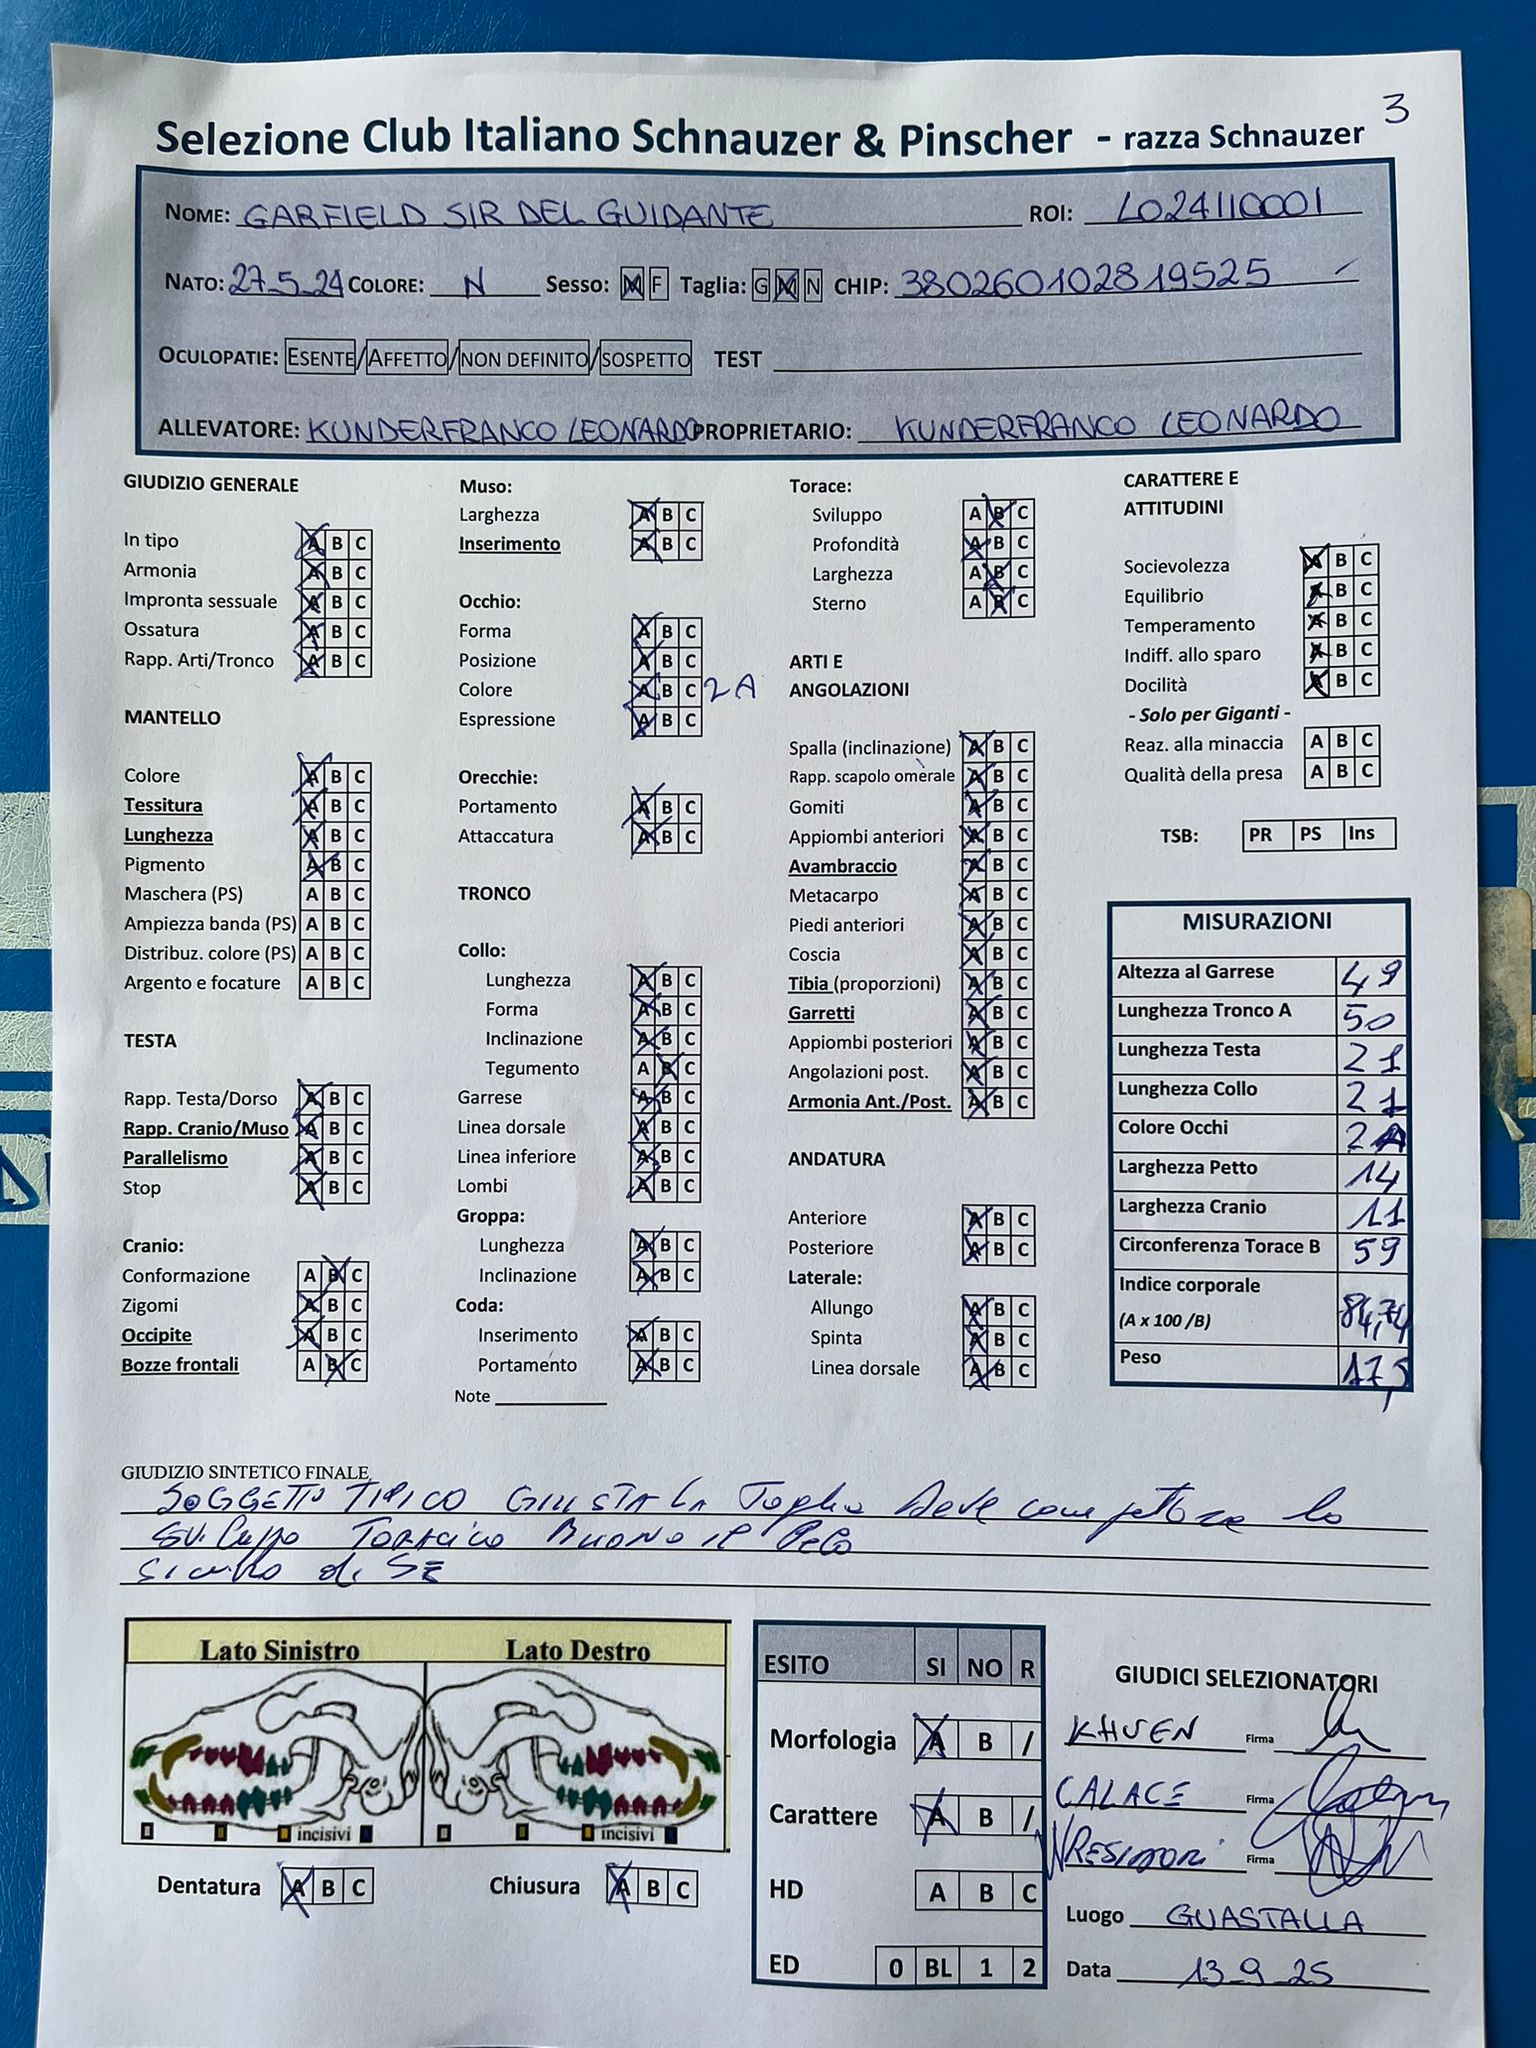 3
Selezione Club Italiano Schnauzer & Pinscher - razza Schnauzer
NOME: GARFIELD SIR DEL GUIDANTE ROI: LO24110001
NATO: 27_5_24 COLORE: N Sesso: M F Taglia: G M N CHIP: 380260102819525
OCULOPATIE: ESENTE/AFFETTO/NON DEFINITO/SOSPETTO TEST
ALLEVATORE: KUNDERFRANCO LEONARDO PROPRIETARIO: KUNDERFRANCO LEONARDO
GIUDIZIO GENERALE
In tipo A B C
Armonia A B C
Impronta sessuale A B C
Ossatura A B C
Rapp. Arti/Tronco A B C
MANTELLO
Colore A B C
Tessitura A B C
Lunghezza A B C
Pigmento A B C
Maschera (PS) A B C
Ampiezza banda (PS) A B C
Distribuz. colore (PS) A B C
Argento e focature A B C
TESTA
Rapp. Testa/Dorso A B C
Rapp. Cranio/Muso A B C
Parallelismo A B C
Stop A B C
Cranio:
Conformazione A B C
Zigomi A B C
Occipite A B C
Bozze frontali A B C
Muso:
Larghezza A B C
Inserimento A B C
Occhio:
Forma A B C
Posizione A B C
Colore A B C 2A
Espressione A B C
Orecchie:
Portamento A B C
Attaccatura A B C
TRONCO
Collo:
Lunghezza A B C
Forma A B C
Inclinazione A B C
Tegumento A B C
Garrese A B C
Linea dorsale A B C
Linea inferiore A B C
Lombi A B C
Groppa:
Lunghezza A B C
Inclinazione A B C
Coda:
Inserimento A B C
Portamento A B C
Note
Torace:
Sviluppo A B C
Profondità A B C
Larghezza A B C
Sterno A B C
ARTI E
ANGOLAZIONI
Spalla (inclinazione) A B C
Rapp. scapolo omerale A B C
Gomiti A B C
Appiombi anteriori A B C
Avambraccio A B C
Metacarpo A B C
Piedi anteriori A B C
Coscia A B C
Tibia (proporzioni) A B C
Garretti A B C
Appiombi posteriori A B C
Angolazioni post. A B C
Armonia Ant./Post. A B C
ANDATURA
Anteriore A B C
Posteriore A B C
Laterale:
Allungo A B C
Spinta A B C
Linea dorsale A B C
CARATTERE E
ATTITUDINI
Socievolezza A B C
Equilibrio A B C
Temperamento A B C
Indiff. allo sparo A B C
Docilità A B C
- Solo per Giganti -
Reaz. alla minaccia A B C
Qualità della presa A B C
TSB: PR PS Ins
MISURAZIONI
Altezza al Garrese 49
Lunghezza Tronco A 50
Lunghezza Testa 21
Lunghezza Collo 21
Colore Occhi 2A
Larghezza Petto 14
Larghezza Cranio 11
Circonferenza Torace B 59
Indice corporale
(A x 100 /B) 84,74
Peso 17,5
GIUDIZIO SINTETICO FINALE
SOGGETTO TIPICO GIUSTA LA Taglia Deve completare lo
Sviluppo TORACICO BUONO il Pelo
Sicuro di SE
Lato Sinistro Lato Destro
incisivi incisivi
Dentatura A B C Chiusura A B C
ESITO SI NO R
Morfologia A B /
Carattere A B /
HD A B C
ED 0 BL 1 2
GIUDICI SELEZIONATORI
KHUEN Firma
CALACE Firma
Firma
Luogo GUASTALLA
Data 13_9_25